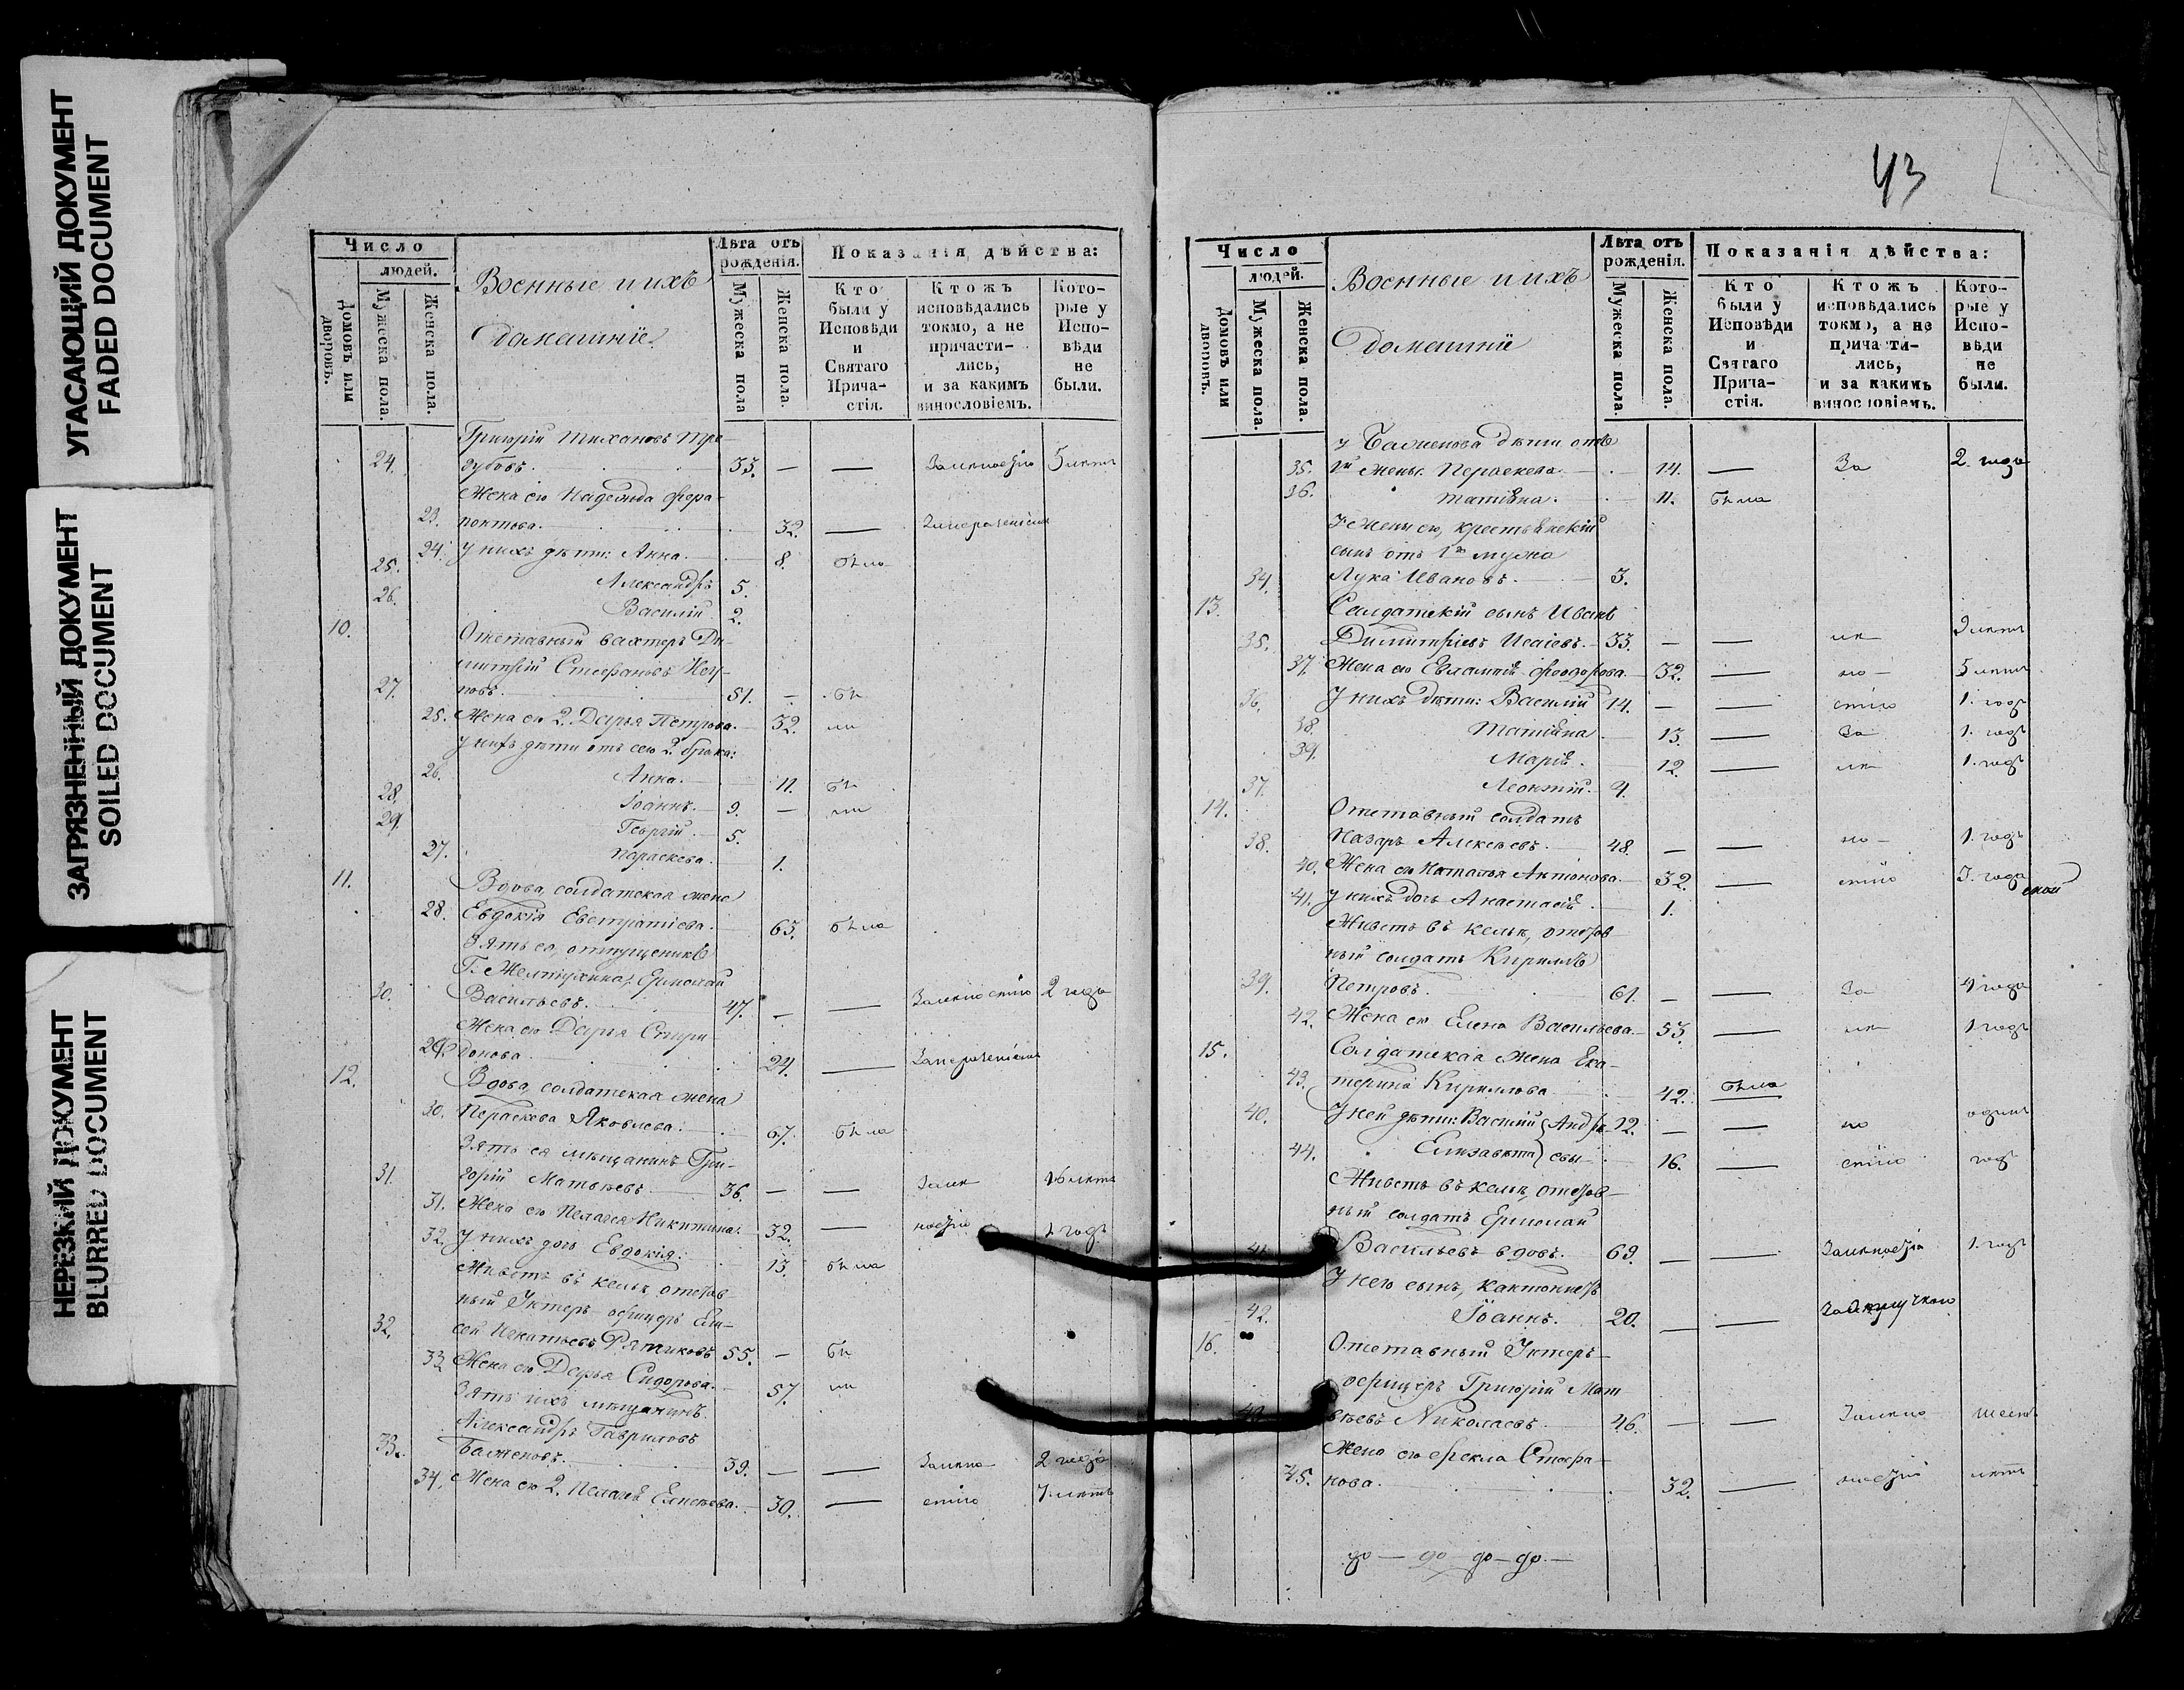 УГАСАЮЩИЙ ДОКУМЕНТ
FADED DOCUMENT
ЗАГРЯЗНЕННЫЙ ДОКУМЕНТ
SOILED DOCUMENT
НЕРЕЗКИЙ ДОКУМЕНТ
BLURRED DOCUMENT
Число
людей.
Домовъ или дворовъ.
Мужеска пола.
Женска пола.
Военные и ихъ
домашніе.
Лѣта отъ рожденія.
Мужеска пола
Женска пола.
Показанія дѣйства:
Кто были у Исповѣди и Святаго Прича-стія.
Ктожъ исповѣдались токмо, а не причасти-лись, и за какимъ винословіемъ.
Кото-рые у Испо-вѣди не были.
Григорій
24. зубовъ. 33. — — 5 лѣтъ
Жена его Надежда Фера-
23. понтова. 32. —
24. У нихъ дѣти: Анна. 8. была
25. Александръ 5.
26. Василій 2.
10. Отставный вахтеръ Ди-
митрій Стефановъ
27. 51. — бы
25. Жена его 2. Дарья Петрова. 32. ли
У нихъ дѣти отъ сего 2. брака:
26. Анна. 11. бы
28. Іоаннъ. 9. — ли
29. Георгій. 5.
27. Параскева. 1.
11. Вдова, солдатская жена
28. Евдокія Евстратіева. 63. была
Зять ея, отпущеникъ
Г. Желтухина, Ермолай
30. Васильевъ. 47. — — 2 года
Жена его Дарья Спири-
29. донова 24. —
12. Вдова, солдатская жена
30. Параскева Яковлева. 67. была
Зять ея мѣщанинъ Гри-
31. горій Матвѣевъ 36. — — 16 лѣтъ
31. Жена его Пелагея Никитина. 32. — 1 годъ
32. У нихъ дочь Евдокія. 13. была
Живетъ въ кельѣ, отстав-
ный Унтеръ-офицеръ Ели-
32. сей Игнатьевъ 55. — бы
33. Жена его Дарья Сидорова. 57. ли
Зять ихъ мѣщанинъ
Александръ Гавриловъ
33. Баженовъ. 39. — — 2 года
34. Жена его 2. Пелагея Елисѣева. 30. — 7 лѣтъ
43
Число
людей.
Домовъ или дворовъ.
Мужеска пола.
Женска пола.
Военные и ихъ
домашніе
Лѣта отъ рожденія.
Мужеска пола.
Женска пола.
Показанія дѣйства:
Кто были у Исповѣди и Святаго Прича-стія.
Ктожъ исповѣдались токмо, а не причасти-лись, и за какимъ винословіемъ.
Кото-рые у Испо-вѣди не были.
У Баженова дѣти отъ
35. 1й жены: Параскева. 14. — За 2. года
36. Татіана. 11. была
У жены его, крестьянскій
сынъ отъ 1го мужа
34. Лука Ивановъ. 3.
13. Солдатскій сынъ Иванъ
35. Димитріевъ Исаіевъ. 33. — — лѣтъ
37. Жена его Евлампія Феодорова. 32. — 5 лѣтъ
36. У нихъ дѣти: Василій 14. — — 1. годъ
38. Татіана 13. — За 1. годъ
39. Марія. 12. — 1. годъ
37. Леонтій. 4.
14. Отставный солдатъ
38. Назаръ Алексѣевъ. 48. — — 1. годъ
40. Жена его Наталья Антонова. 32. — 3. года
41. У нихъ дочь Анастасія 1.
Живетъ въ кельѣ, отстав-
ный солдатъ Кириллъ
39. Петровъ. 61. — — За 4 года
42. Жена его Елена Васильева. 53. — 1 годъ
15. Солдатская жена Ека-
43. терина Кириллова 42. была
40. У ней дѣти: Василій } Андре- 22. — — одинъ
44. Елизавета } евы 16. — годъ
Живетъ въ кельѣ, отстав-
ный солдатъ Ермолай
41. Васильевъ вдовъ. 69. — — 1. годъ
У него сынъ, кантонистъ
42. Іоаннъ. 20. — —
16. Отставный Унтеръ-
офицеръ Григорій Мат
43. вѣевъ Николаевъ 46. — — шесть
Жена его Фекла Стефа-
45. нова. 32. — лѣтъ